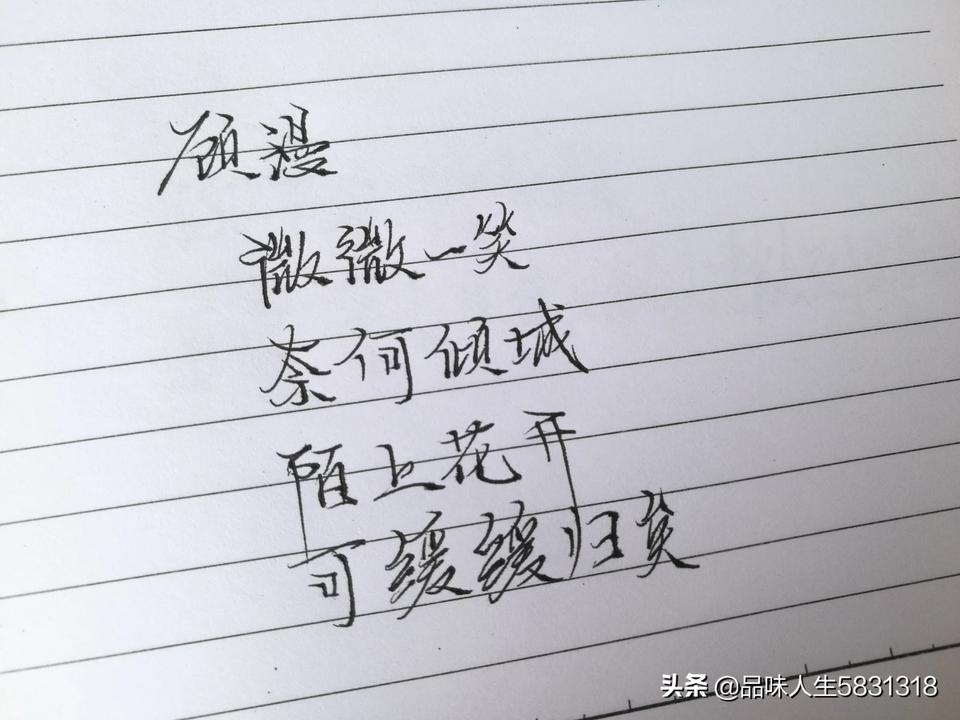 顾漫
微微一笑
奈何倾城
陌上花开
可缓缓归矣
头条 @品味人生5831318